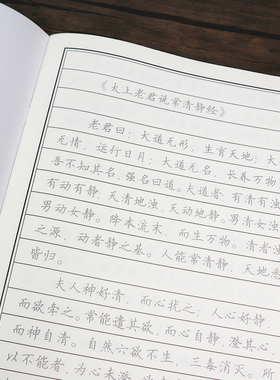 《太上老君说常清静经》
老君曰：大道无形，生育天地；大
无情，运行日月；大道无名，长养万物
吾不知其名，强名曰道。夫道者：有清有浊
有动有静；天清地浊，天动地静。男清女浊
男动女静。降本流末，而生万物。清者浊
之源，动者静之基。人能常清静，天地悉
皆归。
夫人神好清，而心扰之；人心好静，
而欲牵之。常能遣其欲，而心自静，澄其心
而神自清。自然六欲不生，三毒消灭。所
以不能者，为心未澄，